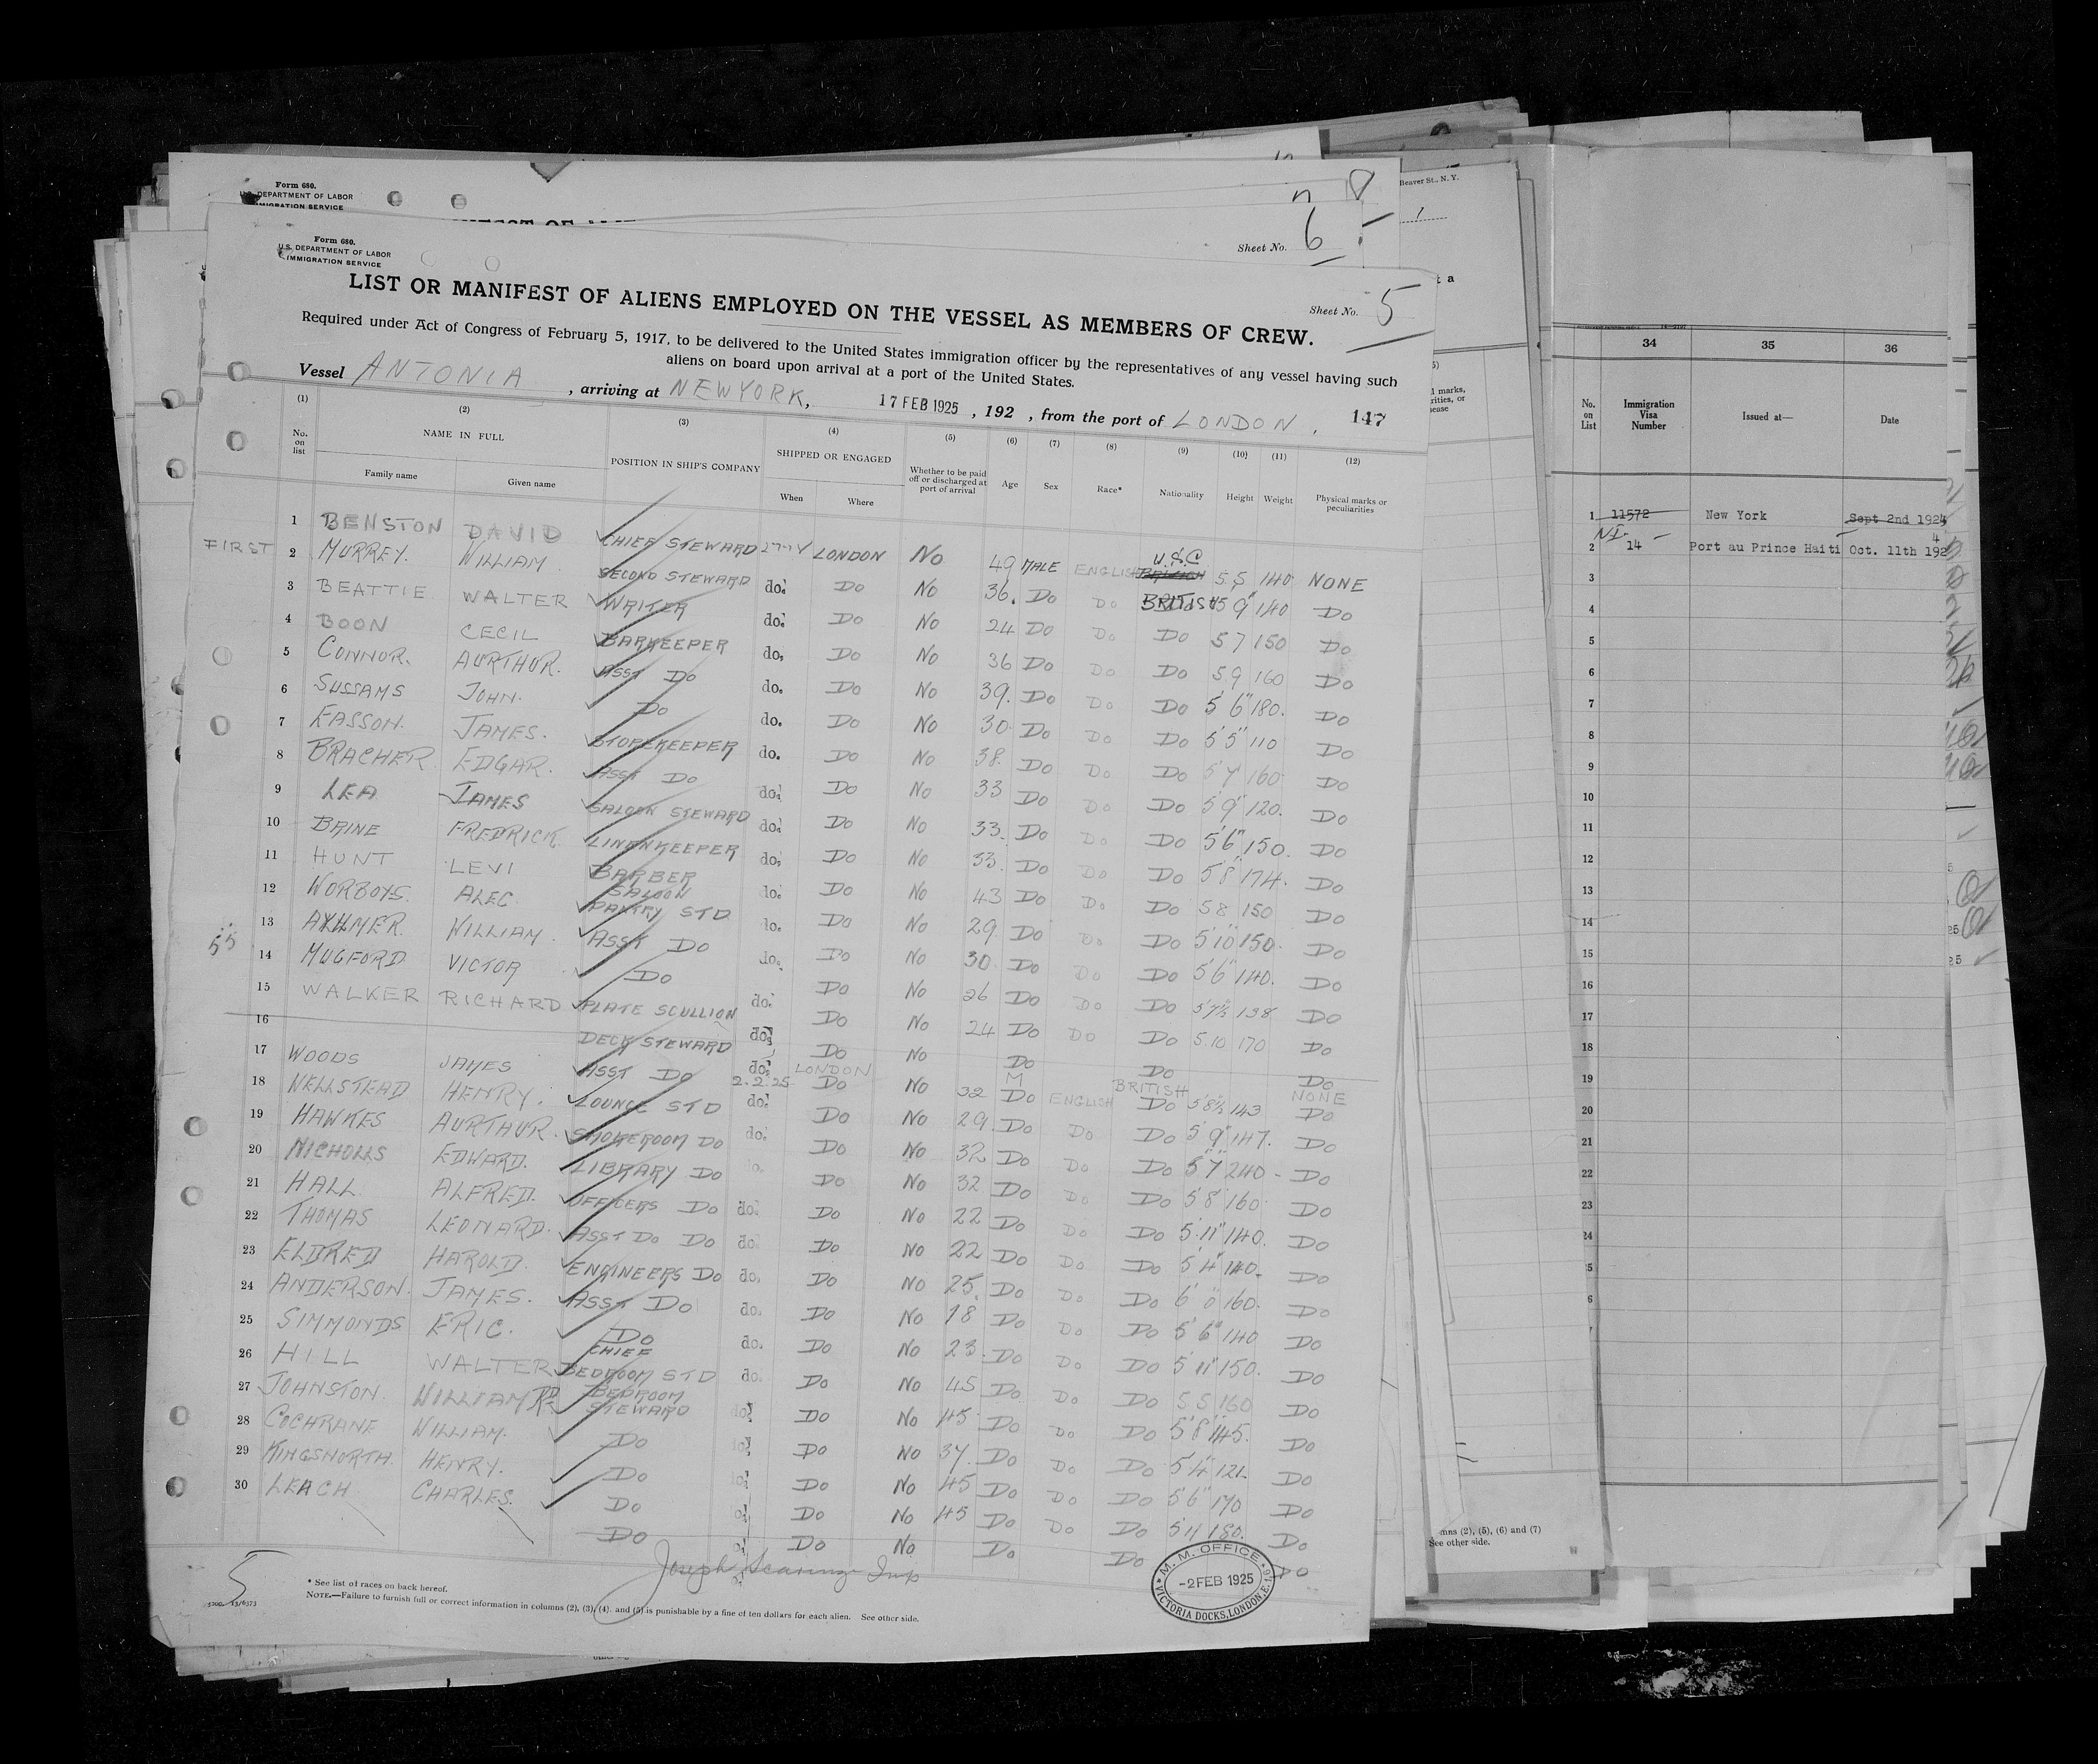 Form 680.
U.S. DEPARTMENT OF LABOR
IMMIGRATION SERVICE
Sheet No. 6
Form 680.
U.S. DEPARTMENT OF LABOR
IMMIGRATION SERVICE
LIST OR MANIFEST OF ALIENS EMPLOYED ON THE VESSEL AS MEMBERS OF CREW.
Sheet No. 5
Required under Act of Congress of February 5, 1917, to be delivered to the United States immigration officer by the representatives of any vessel having such
aliens on board upon arrival at a port of the United States.
Vessel ANTONIA, arriving at NEW YORK, 17 FEB 1925, 192 , from the port of LONDON. 147
(1) (2) (3) (4) (5) (6) (7) (8) (9) (10) (11) (12)
No. on list NAME IN FULL POSITION IN SHIP'S COMPANY SHIPPED OR ENGAGED Whether to be paid off or discharged at port of arrival Age Sex Race* Nationality Height Weight Physical marks or peculiarities
Family name Given name When Where
1 BENSTON DAVID CHIEF STEWARD LONDON No 49 MALE ENGLISH U.S.C 5.5 140 NONE
FIRST 2 MURREY. WILLIAM SECOND STEWARD do. Do No 36. Do Do BRITISH 5 9" 140 Do
3 BEATTIE WALTER WRITER do. Do No 24 Do Do Do 5 7 150 Do
4 BOON CECIL BARKEEPER do. Do No 36 Do Do Do 5.9 160 Do
5 CONNOR. AURTHUR. ASST Do do. Do No 39. Do Do Do 5' 6" 180. Do
6 SUSSAMS JOHN. Do do. Do No 30 Do Do Do 5' 5" 110 Do
7 EASSON. JAMES. STOREKEEPER do. Do No 38. Do Do Do 5' 7" 160 Do
8 BRACHER. EDGAR. ASST Do do. Do No 33 Do Do Do 5' 9" 120. Do
9 LEA JAMES SALOON STEWARD do. Do No 33. Do Do Do 5' 6" 150. Do
10 BRINE FREDRICK LINENKEEPER do. Do No 33. Do Do Do 5' 8" 174. Do
11 HUNT LEVI BARBER do. Do No 43 Do Do Do 5 8 150 Do
12 WORBOYS. ALEC. SALOON PANTRY STD do. Do No 29. Do Do Do 5' 10" 150. Do
55 13 AYLMER. WILLIAM. ASST Do do. Do No 30. Do Do Do 5' 6" 140. Do
14 MUGFORD VICTOR Do Do No 26 Do Do Do 5' 7½ 138 Do
15 WALKER RICHARD PLATE SCULLION do. Do No 24 Do Do Do 5.10 170 Do
16 DECK STEWARD do. Do No Do Do Do
17 WOODS JAMES ASST Do do. 2.2.25 LONDON Do No 32 M Do ENGLISH BRITISH Do 5' 8½ 143 NONE Do
18 WELLSTEAD HENRY. LOUNGE STD do. Do No 29. Do Do Do 5' 9" 147. Do
19 HAWKES AURTHUR. SMOKEROOM Do do. Do No 32 Do Do Do 5' 7" 240 - Do
20 NICHOLLS EDWARD. LIBRARY Do do. Do No 32 Do Do Do 5' 8" 160 Do
21 HALL ALFRED. OFFICERS Do do. Do No 22 Do Do Do 5' 11" 140. Do
22 THOMAS LEONARD. ASST Do Do do. Do No 22 Do Do Do 5' 4" 140. Do
23 ELDRED HAROLD. ENGINEERS Do do. Do No 25. Do Do Do 6' 0" 160. Do
24 ANDERSON. JAMES. ASST Do do. Do No 18 Do Do Do 5' 6" 140 Do
25 SIMMONDS ERIC. Do do. Do No 23. Do Do Do 5' 11" 150. Do
26 HILL WALTER CHIEF BEDROOM STD do. Do No 45 Do Do Do 5 5 160 Do
27 JOHNSTON. WILLIAM RD BEDROOM STEWARD do. Do No 45 Do Do Do 5' 8" 145. Do
28 COCHRANE WILLIAM. Do do. Do No 37. Do Do Do 5' 4" 121 Do
29 KINGSNORTH. HENRY. Do do. Do No 45 Do Do Do 5' 6" 170 Do
30 LEACH CHARLES. Do Do No 45 Do Do Do 5' 11 180. Do
Do Do No Do Do Do
Joseph
M. M. OFFICE
-2 FEB 1925
VICTORIA DOCKS, LONDON, E.16
5
* See list of races on back hereof.
NOTE.—Failure to furnish full or correct information in columns (2), (3), (4), and (5) is punishable by a fine of ten dollars for each alien. See other side.
Beaver St., N. Y.
34 35 36
No. on List Immigration Visa Number Issued at— Date
1 11572 New York Sept 2nd 1924
2 NI- 14 Port au Prince Haiti Oct. 11th 192
3
4
5
6
7
8
9
10
11
12
13
14
15
16
17
18
19
20
21
22
23
24
mns (2), (5), (6) and (7)
See other side.